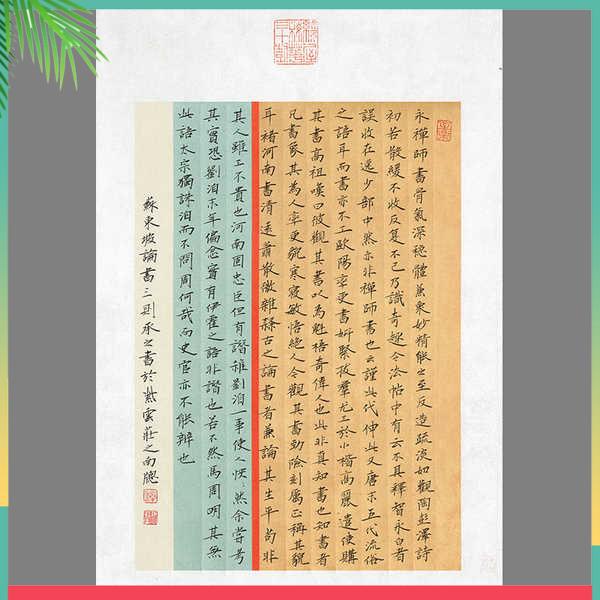 永禪師書骨氣深穩體兼衆妙精能之至反造疏淡如觀陶彭澤詩
初若散緩不收反复不已乃識奇趣今法帖中有云不具釋智永白者
誤收在逸少部中然亦非禪師書也云謹此代伸此又唐末五代流俗
之語耳而書亦不工歐陽率更書妍緊拔羣尤工於小楷高麗遣使購
其書高祖嘆曰彼觀其書以為魁梧奇偉人也此非真知書也知書者
凡書象其為人率更貌寒寢敏悟絕人今觀其書勁險刻厲正稱其貌
耳褚河南書清遠蕭散微雜隸古之論書者兼論其生平苟非
其人雖工不貴也河南固忠臣但有譖殺劉洎一事使人怏然余嘗考
其實恐劉洎末年偏忿實有伊霍之語非譖也若不然馬周明其無
此語太宗獨誅洎而不問周何哉而史官亦不能辨也
蘇東坡論書三則承之書於紫雲莊之南牕